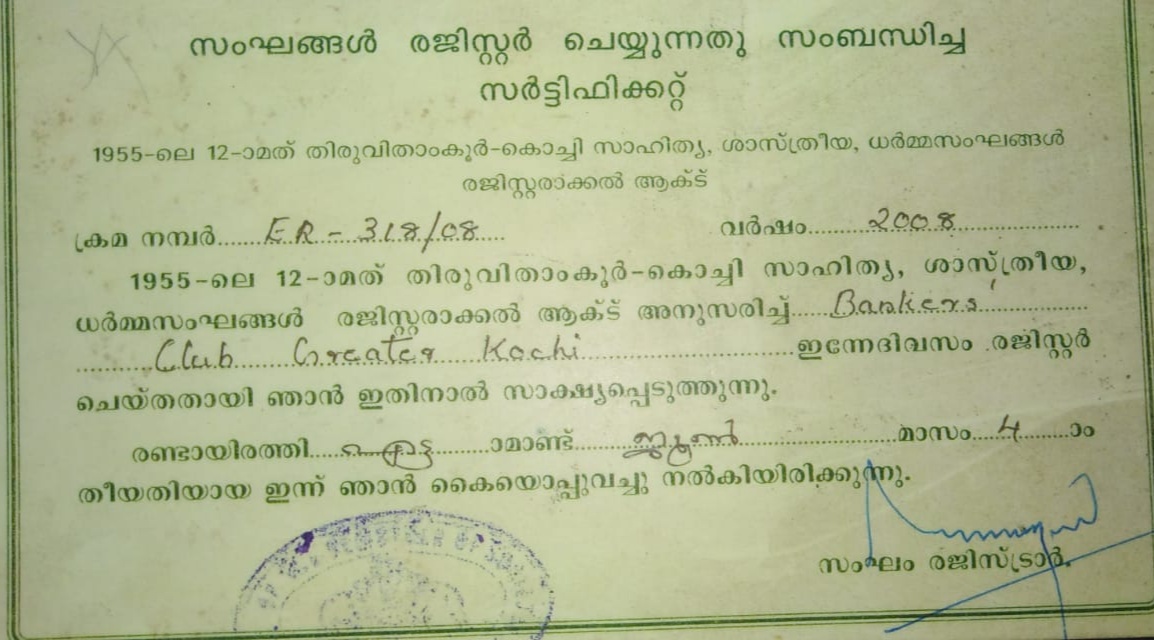 സംഘങ്ങൾ രജിസ്റ്റർ ചെയ്യുന്നതു സംബന്ധിച്ച
സർട്ടിഫിക്കറ്റ്
1955-ലെ 12-ാമത് തിരുവിതാംകൂർ-കൊച്ചി സാഹിത്യ, ശാസ്ത്രീയ, ധർമ്മസംഘങ്ങൾ
രജിസ്റ്ററാക്കൽ ആക്ട്
ക്രമ നമ്പർ......ER-318/08.... വർഷം.........2008..................
1955-ലെ 12-ാമത് തിരുവിതാംകൂർ-കൊച്ചി സാഹിത്യ, ശാസ്ത്രീയ,
ധർമ്മസംഘങ്ങൾ രജിസ്റ്ററാക്കൽ ആക്ട് അനുസരിച്ച്.....Bankers'...............
..........Club.......Greater....Kochi...........................ഇന്നേദിവസം രജിസ്റ്റർ
ചെയ്തതായി ഞാൻ ഇതിനാൽ സാക്ഷ്യപ്പെടുത്തുന്നു.
രണ്ടായിരത്തി....എട്ട.......ാമാണ്ട്.......ജൂൺ....................മാസം...4.......ാം
തീയതിയായ ഇന്ന് ഞാൻ കൈയൊപ്പുവച്ചു നൽകിയിരിക്കുന്നു.
സംഘം രജിസ്ട്രാർ.